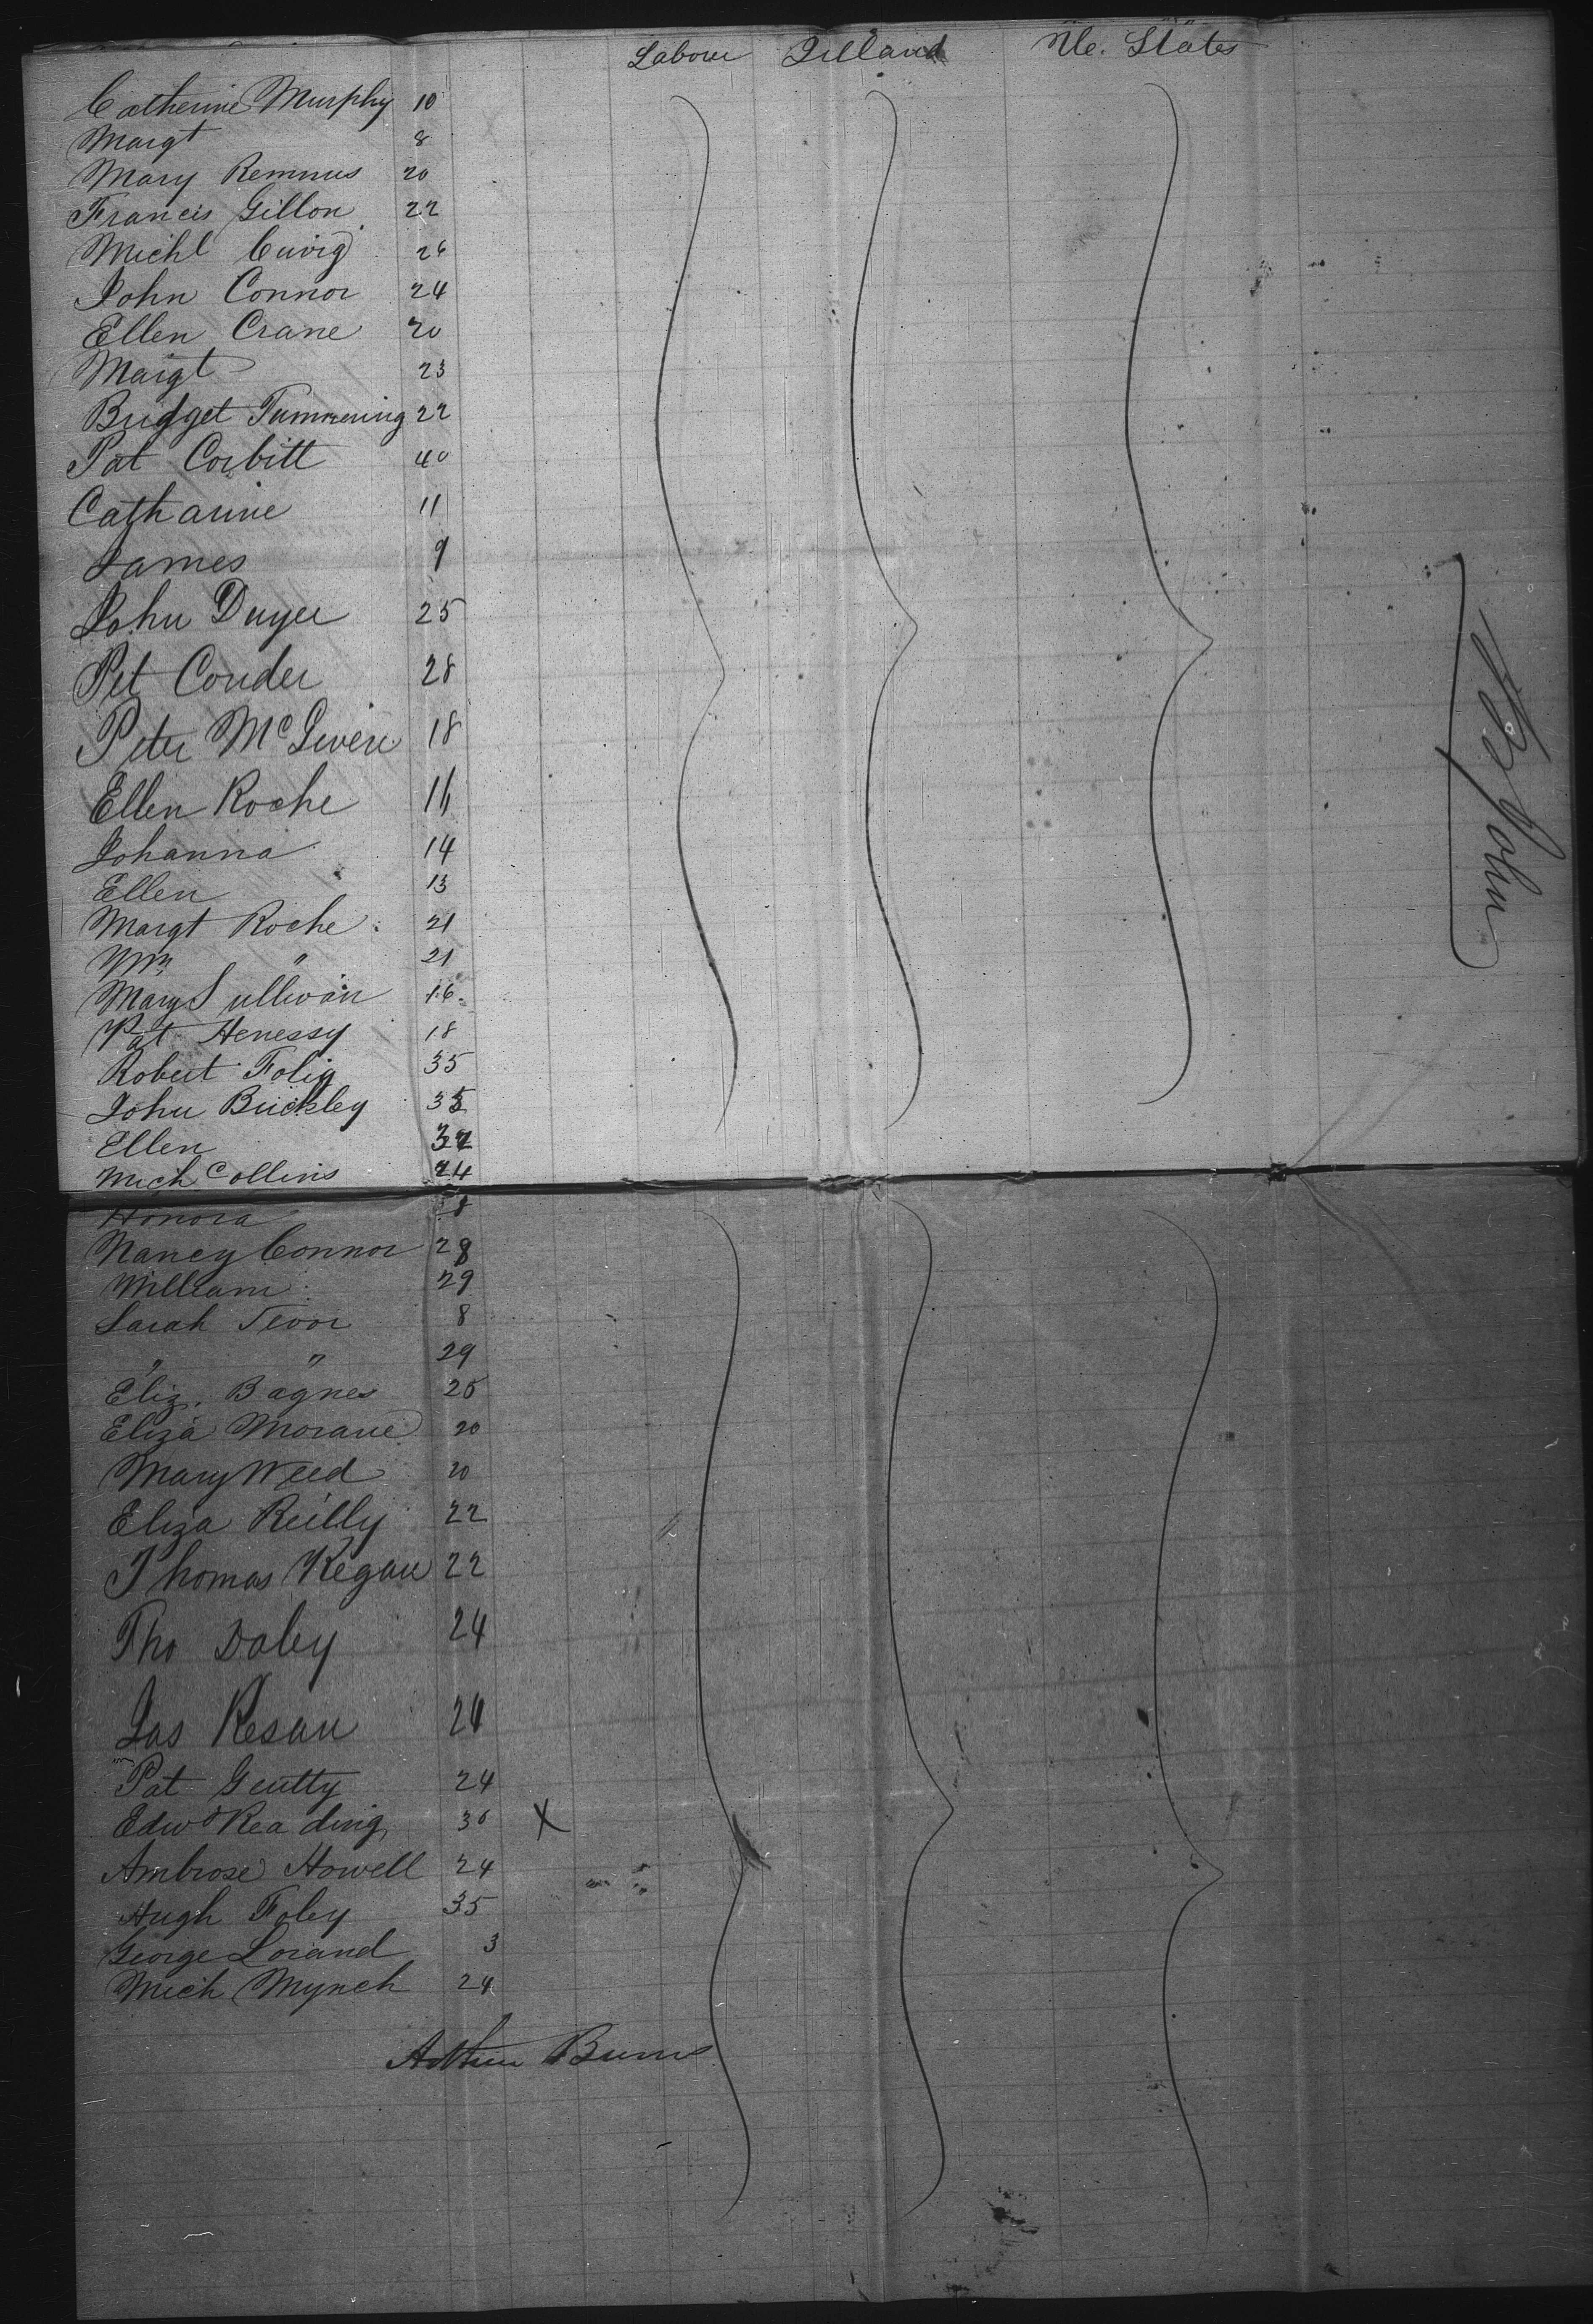 Labour Irelland Ute. States
Catherine Murphy 10
Margt 8
Mary Remnus 20
Francis Gillon 22
Michl Cuvig 26
John Connor 24
Ellen Crane 20
Margt 23
Bridget Tummening 22
Pat Corbitt 40
Catharine 11
James 9
John Duyer 25
Pet Conder 28
Peter Mc 18
Ellen Roche 16
Johanna 14
Ellen 13
Margt Roche 21
Wm " 21
Mary Sullivan 16
Pat Henessy 18
Robert Folig 35
John Buckley 35
Ellen 32
Mich Collins 24
Honora 8
Nancy Connor 28
William 29
Sarah 8
" " 29
Eliz. Bagnes 25
Eliza Morane 20
Mary Weed 20
Eliza Reilly 22
Thomas Kegan 22
Tho Daley 24
Jas Kesan 24
Pat Geutty 24
Edwd Reading 36 X
Ambrose Howell 24
Hugh Foley 35
George Loiand 3
Mich Mynch 24
Arthur Burns
St John